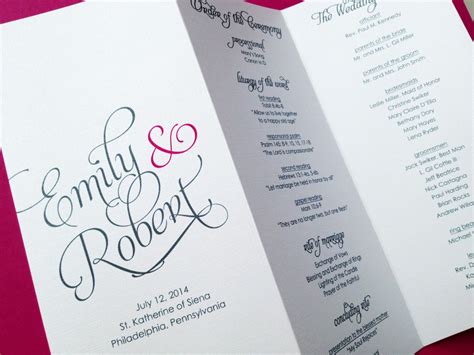 Emily &
Robert
July 12, 2014
St. Katherine of Siena
Philadelphia, Pennsylvania
Order of the Ceremony
processional
Mary's Song
Canon in D
liturgy of the word
first reading
Tobit 8:4b-8
"Allow us to live together
to a happy old age"
responsorial psalm
"The Lord is compassionate"
second reading
Hebrews 13:1-4a
"Let marriage be held in honor by all"
gospel reading
Mark 10:6-9
"They are no longer two, but one flesh"
rite of marriage
Exchange of Vows
Blessing and Exchange of Rings
Lighting of the Candle
Prayer of the Faithful
concluding rite
presentation to the blessed mother
"My Soul Rejoices"
The Wedding
officiant
Rev. Paul M. Kennedy
parents of the bride
Mr. and Mrs. L. Gil Miller
parents of the groom
Mr. and Mrs. John Smith
bridesmaids
Leslie Miller, Maid of Honor
Christine Swiker
Mary Claire D'Elia
Bethany Dory
Mary Hayes
Lena Ryder
groomsmen
Jack Swiker, Best Man
L. Gil Coffee
Jeff Beatrice
Nick Castaldi
Paul Harding
Andrew
Brian Rocks
William
ring bearer
Michael